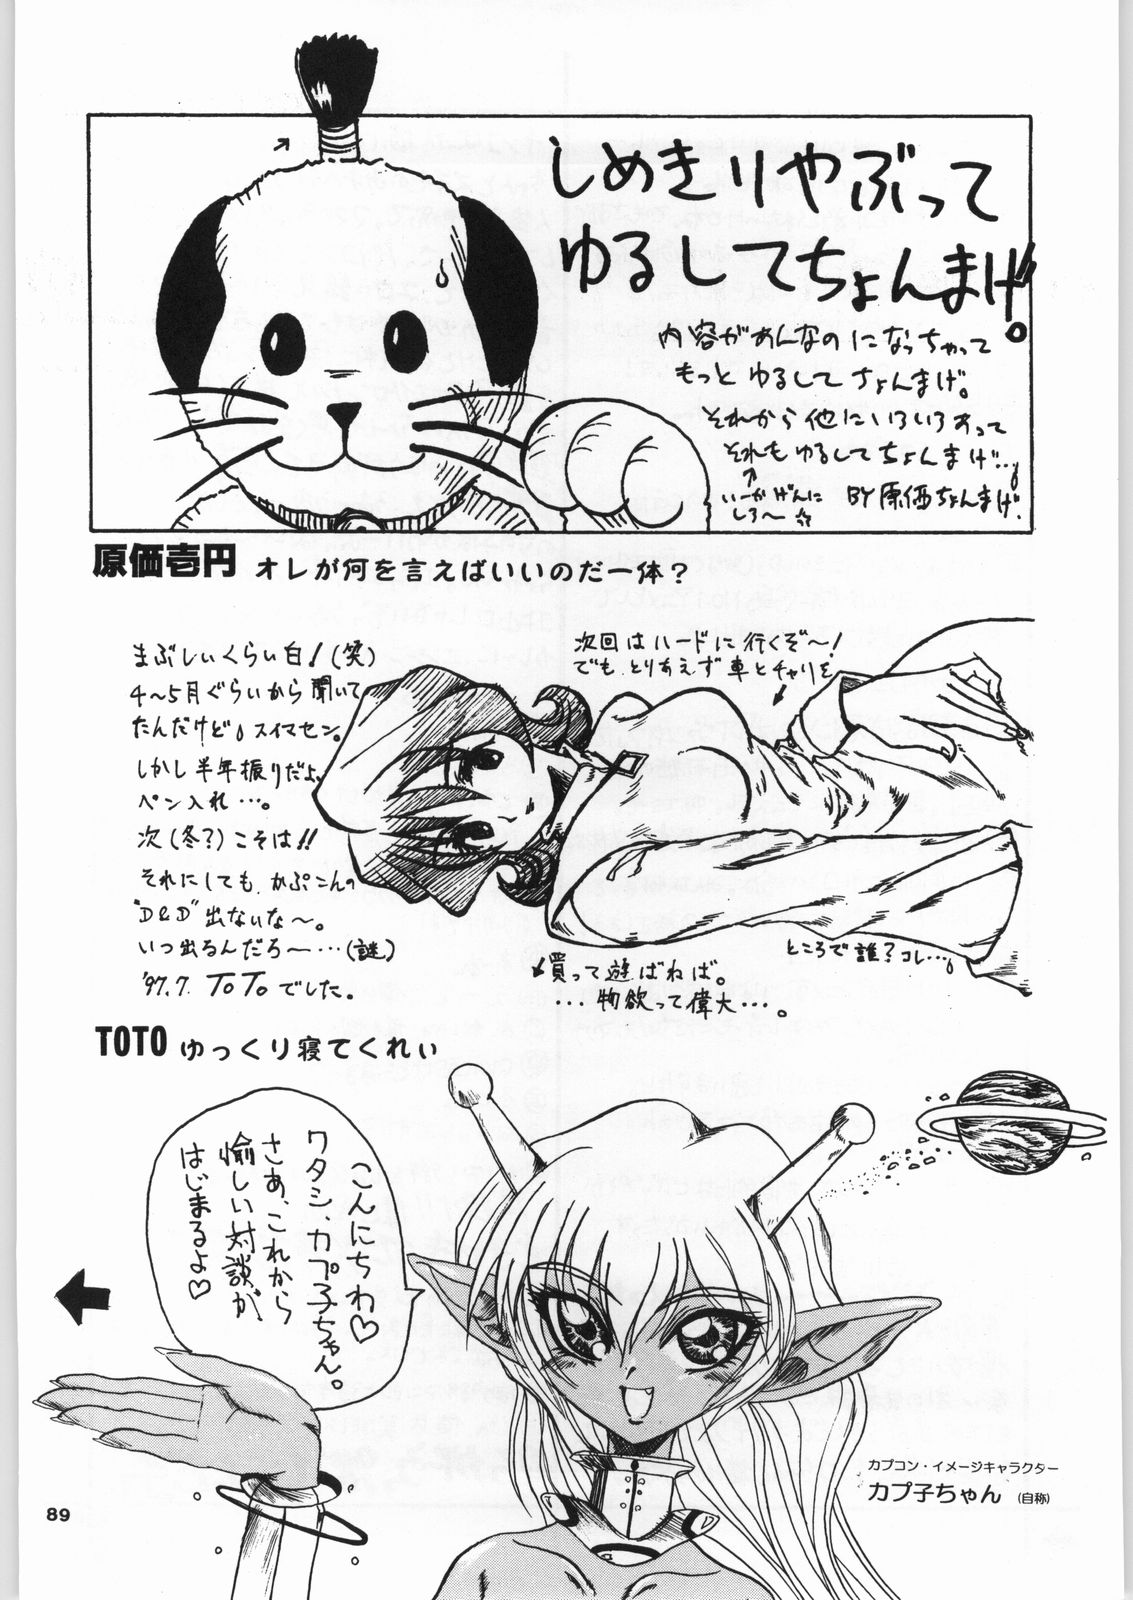 しめきりやぶって
ゆるしてちょんまげ。
内容があんなのになっちゃって
もっとゆるしてちょんまげ。
それから他にいろいろあって
それもゆるしてちょんまげ…。
いーかげんに
しろ〜☆
BY原価ちょんまげ.
原価壱円 オレが何を言えばいいのだ一体？
まぶしいくらい白！(笑)
4〜5月ぐらいから聞いて
たんだけど。スイマセン。
しかし半年振りだよ。
ペン入れ…。
次(冬？)こそは!!
それにしても、かぷこんの
"D&D"出ないな〜。
いつ出るんだろ〜…(謎)
'97.7. TOTOでした。
次回はハードに行くぞ〜！
でも、とりあえず車とチャリを
買って遊ばねば。
…物欲って偉大…。
ところで誰？コレ…。
TOTO ゆっくり寝てくれい
こんにちわ♡
ワタシ、カプ子ちゃん。
さあ、これから
愉しい対談が、
はじまるよ♡
カプコン・イメージキャラクター
カプ子ちゃん （自称）
89